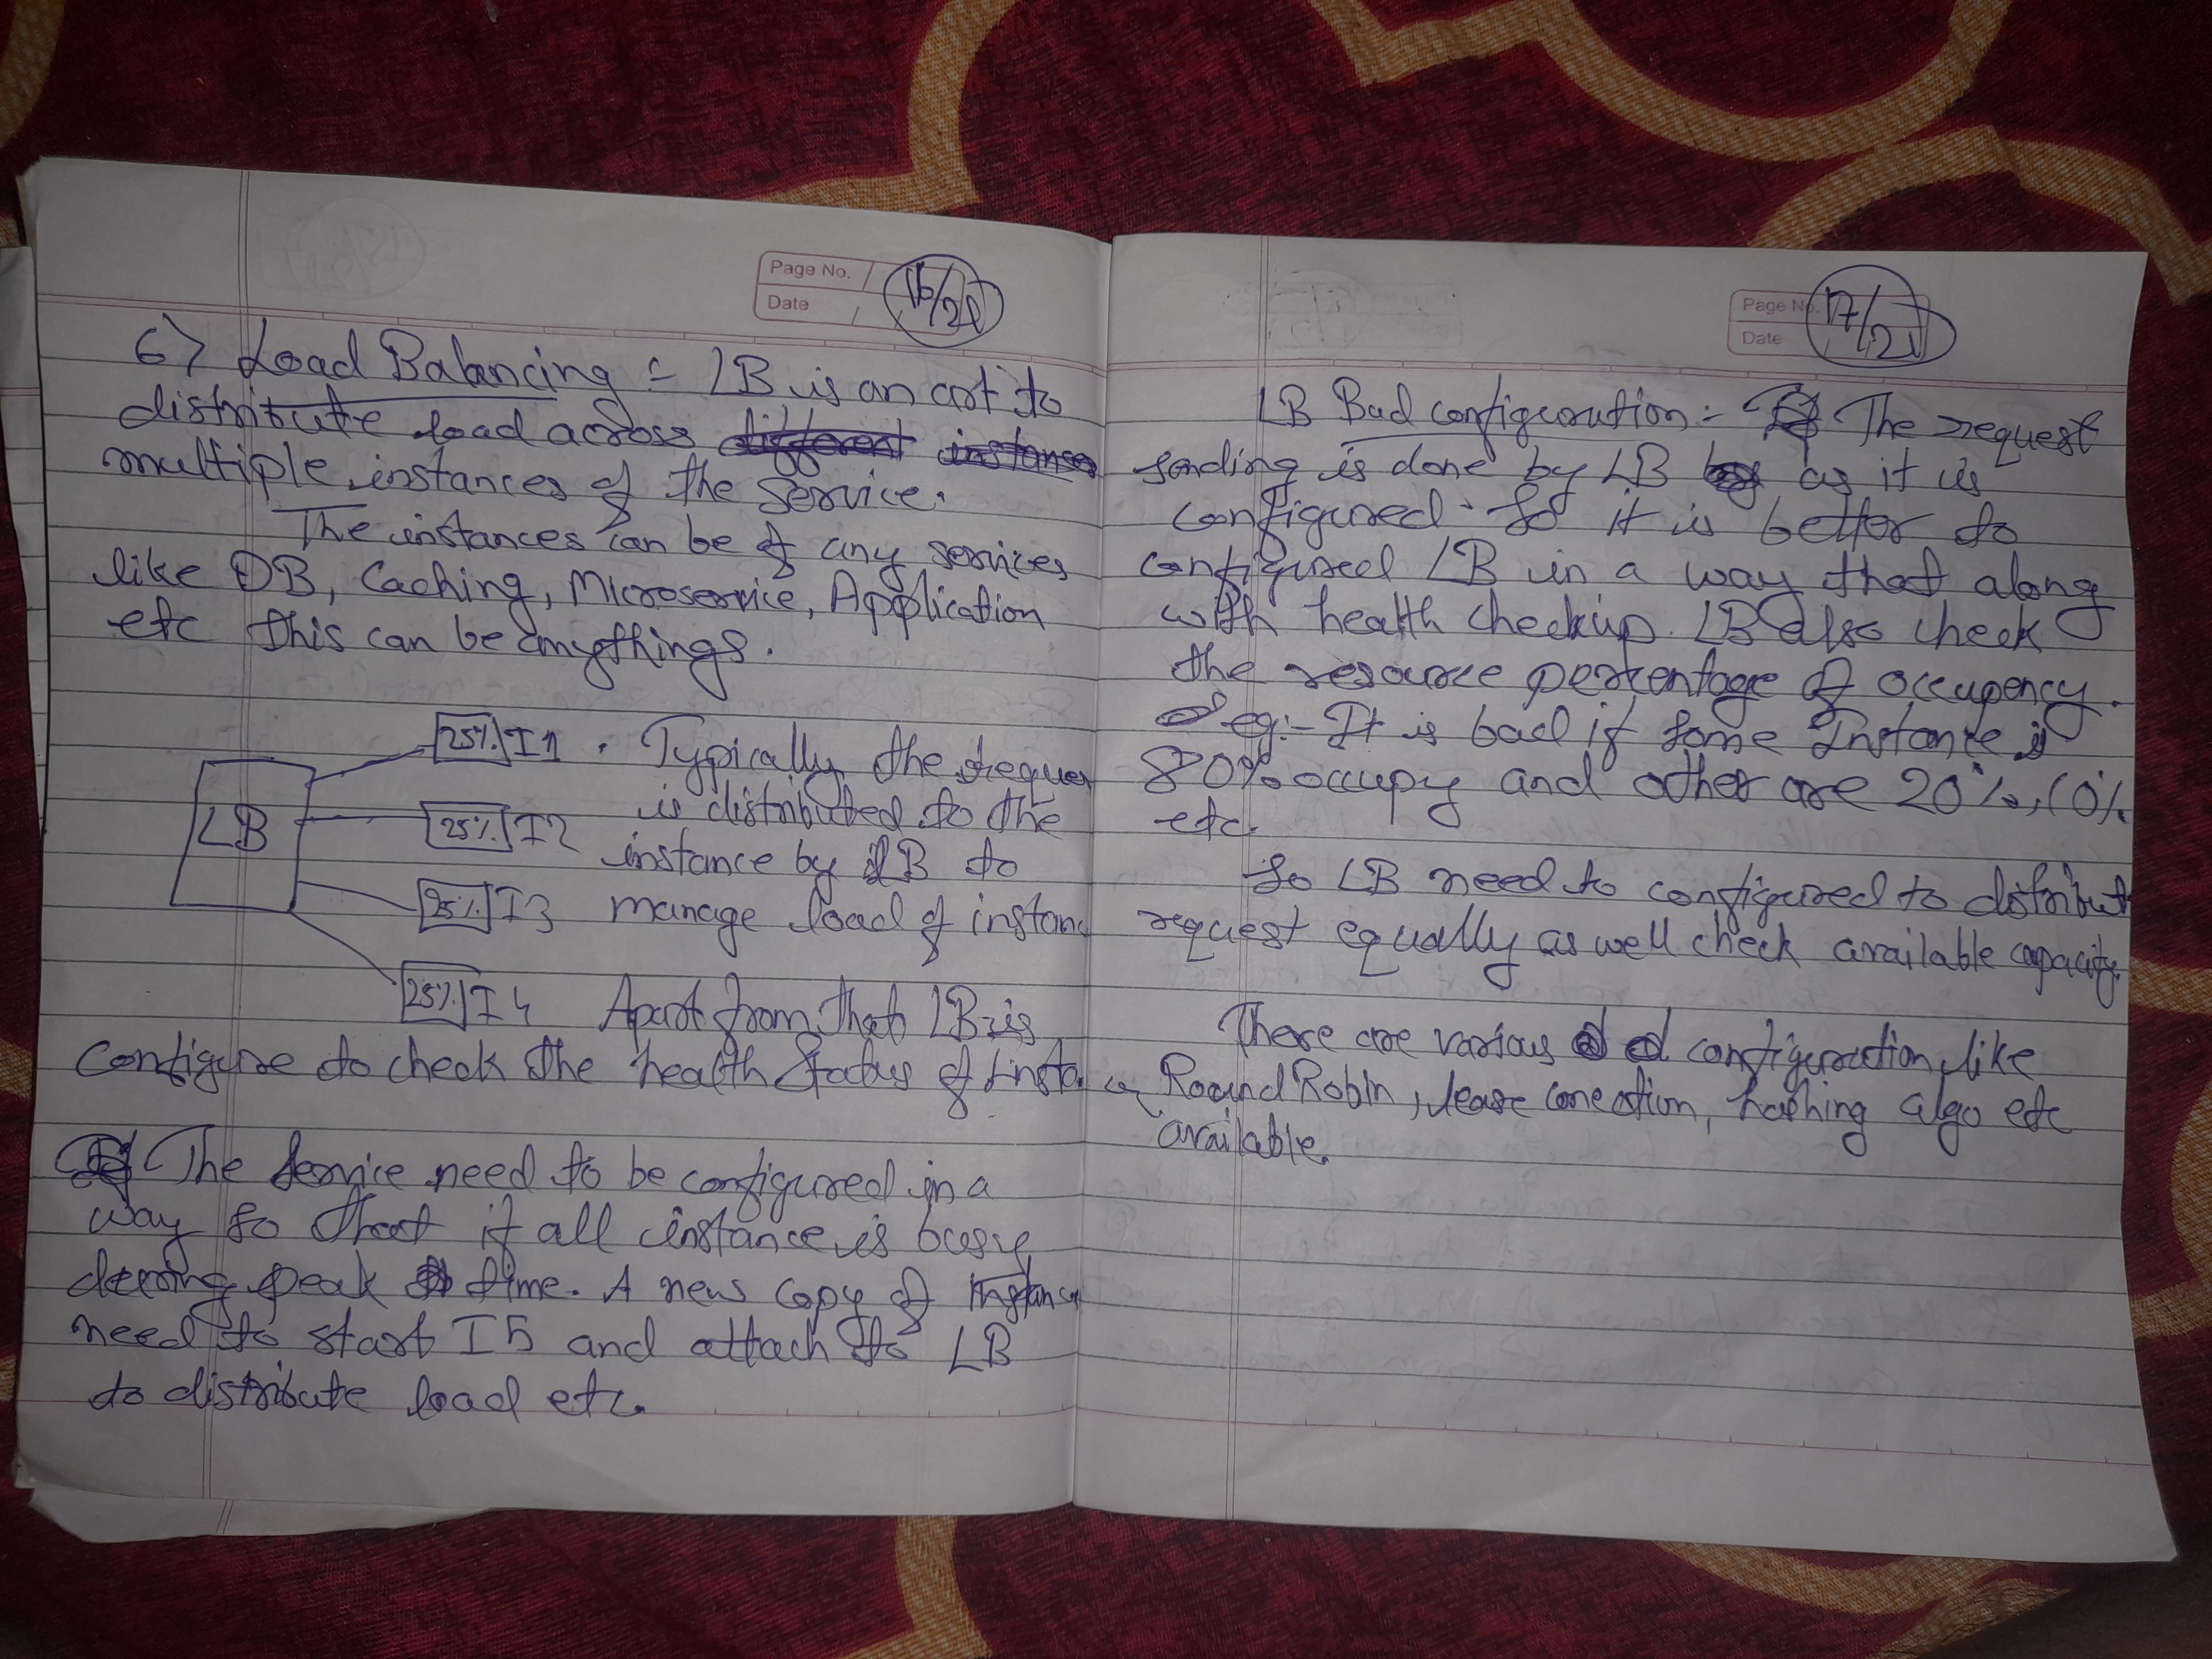 Page No.
Date
16/21
6) Load Balancing :- LB is an art to
distribute load across different instances
multiple instances of the service.
The instances can be of any services
like DB, Caching, Microservice, Application
etc this can be anythings.
LB
25% I1
25% I2
25% I3
25% I4
. Typically the reques
is distributed to the
instance by LB to
manage load of instanc
Apart from that LB is
Configure to check the health status of instan
The service need to be configured in a
way so that if all instance is busy
during peak time. A new copy of instance
need to start I5 and attach to LB
to distribute load etc.
Page No.
Date
17/21
LB Bad configuration :- The request
sending is done by LB as it is
configured. So it is better to
configured LB in a way that along
with health checking. LB also check
the resource percentage of occupency.
eg:- It is bad if some instance is
80% occupy and other are 20%, 10%
etc.
So LB need to configured to distribut
request equally as well check available capacity.
There are various configuration like
Round Robin, lease conection, hashing algo etc
available.